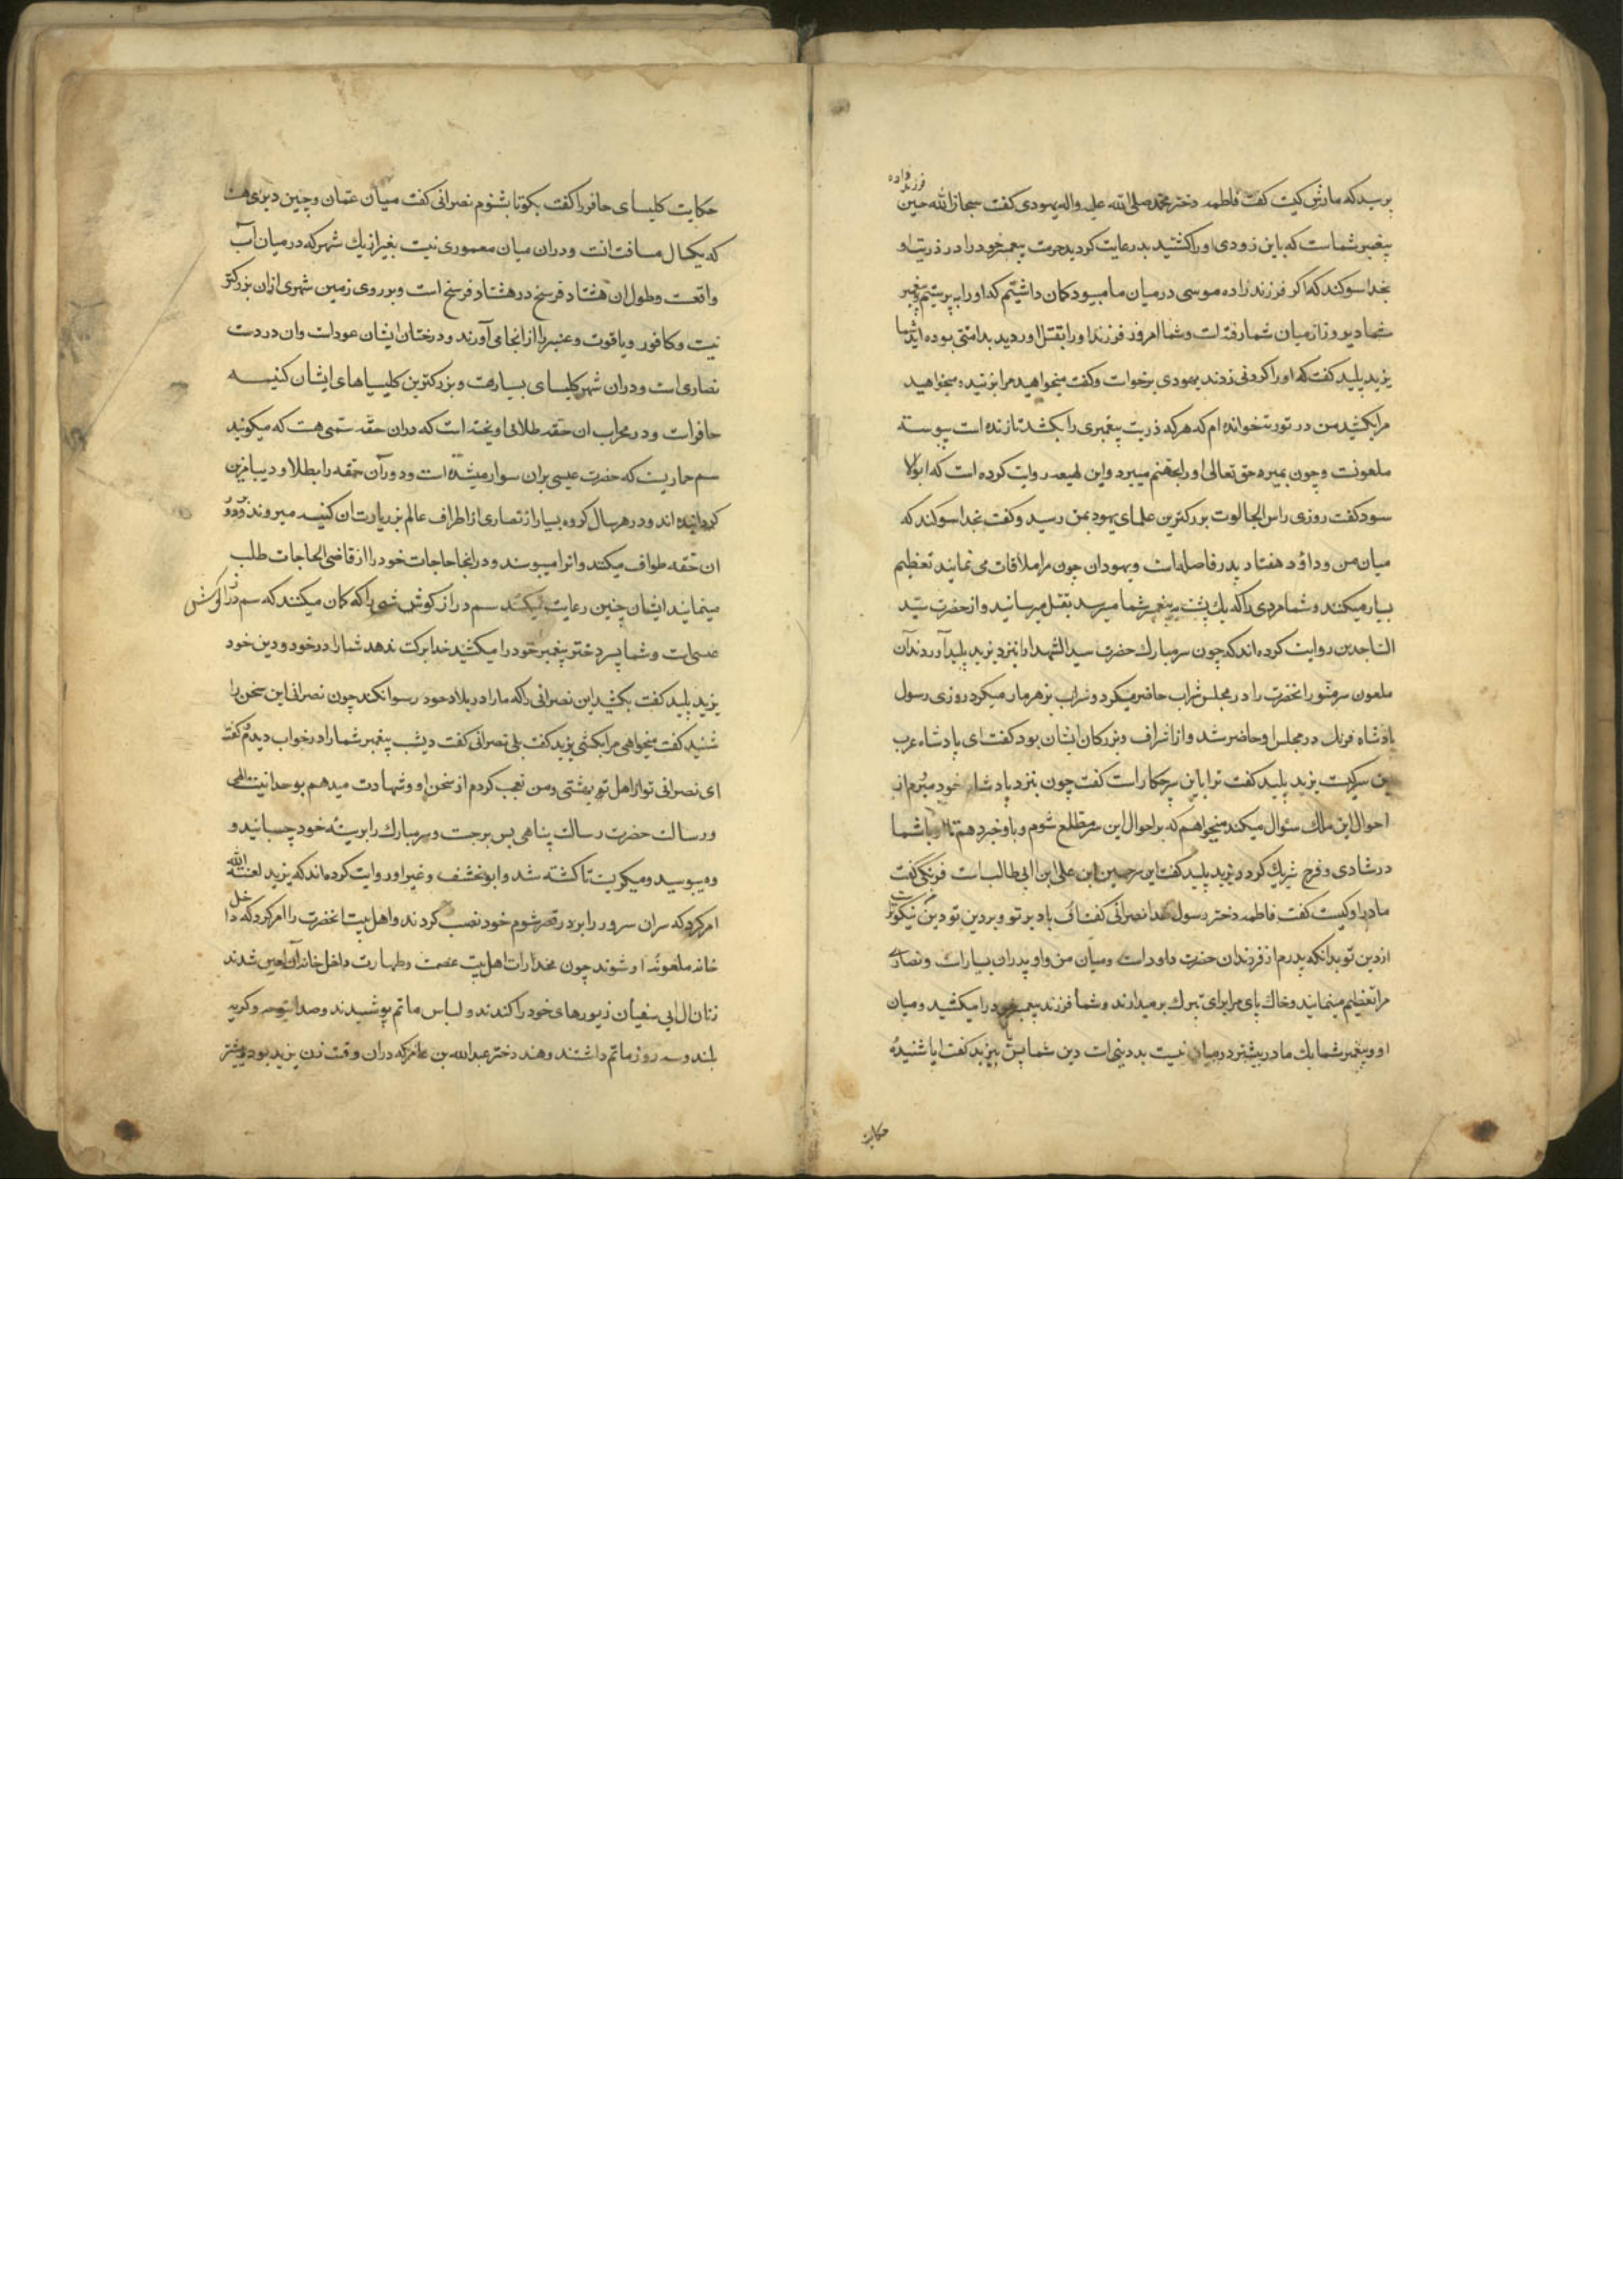 پرسید که مادرش کیست گفت فاطمه دختر محمد صلی الله علیه واله یهودی گفت سبحان الله حسین فرزند زاده
پیغمبر شماست که باین زودی اورا کشتید بد رعایت کردید حرمت پیغمبر خود را در ذریت او
بخدا سوکند که اکر فرزند زاده موسی در میان ما میبود کمان داشتم که اورا به پرستیم پیغمبر
شما دیروز از میان شما رفته است و شما امروز فرزند اورا بقتل اوردید بد امتی بوده اید شما
یزید پلید گفت که اورا کردنی زدند یهودی برخواست وکفت میخواهید مرا بزنید و میخواهید
مرا بکشید من در توریت خوانده ام که هرکه ذریت پیغمبری را بکشد تا زنده است پیوسته
ملعونست و چون بمیرد حق تعالی اورا بجهنم میبرد و ابن لهیعه روایت کرده است که ابولا
سود کفت روزی راس الجالوت بزرکترین علمای یهود بمن رسید و کفت بخدا سوکند که
میان من و داود هفتاد پدر فاصله است ویهودان چون مرا ملاقات می نمایند تعظیم
بسیار میکنند و شما مردی را که یک پشت به پیغمبر شما میرسد بقتل میرسانید و از حضرت سید
الساجدین روایت کرده اند که چون سر مبارک حضرت سید الشهدا را بنزد یزید پلید آوردند آن
ملعون سر منور انحضرت را در مجلس شراب حاضر میکرد و شراب زهرمار میکرد روزی رسول
پادشاه فرنک در مجلس او حاضر شد و از اشراف و بزرکان ایشان بود کفت ای پادشاه عرب
این سر کیست یزید پلید کفت ترا باین سر چکار است کفت چون بنزد پادشاه خود میروم از
احوال این ملک سئوال میکند میخواهم که بر احوال این سر مطلع شوم و باو خبر دهم تا او با شما
در شادی و فرح شریک کردد یزید پلید کفت این سر حسین ابن علی ابن ابی طالب است فرنکی کفت
مادر او کیست کفت فاطمه دختر رسول خدا نصرانی کفت اف باد بر تو و بر دین تو دین من نیکوتر است
از دین تو بدانکه پدرم از فرزندان حضرت داود است ومیان من و او پدران بسیار است و نصارے
مرا تعظیم مینمایند و خاک پای مرا برای تبرک برمیدارند و شما فرزند پیغمبر خود را میکشید ومیان
او و پیغمبر شما یک مادر بیشتر در میان نیست بد دینی است دین شما پس بیزید کفت ایا شنیدهٔ
حکایت
حکایت کلیسای حافر را کفت بکو تا بشنوم نصرانی کفت میان عمان و چین دریای هست
که یکسال مسافت انست و دران میان معموری نیست بغیر از یک شهر که در میان آب
واقعست وطول ان هشتاد فرسخ در هشتاد فرسخ است و بر روی زمین شهری ازان بزرکتر
نیست وکافور و یاقوت وعنبر را از انجا می آورند ودرختان ایشان عود است وان در دست
نصاری است ودران شهر کلیسای بسیار هست و بزرکترین کلیسیاهای ایشان کنیسه
حافر است و در محراب ان حقه طلائی اویخته است که دران حقه سمی هست که میکویند
سم حماریست که حضرت عیسی بران سوار میشده است و دور آن حقه را بطلا و دیبا مزین
کردانیده اند و در هر سال کروه بسیار از نصاری از اطراف عالم بزیارت ان کنیسه میروند و بر دور
ان حقه طواف میکنند وانرا میبوسند و در انجا حاجات خود را از قاضی الحاجات طلب
مینمایند ایشان چنین رعایت میکنند سم دراز کوش شی را که کمان میکنند که سم دراز کوش
عیسی است و شما پسر دختر پیغمبر خود را میکشید خدا برکت ندهد شما را در خود و دین خود
یزید پلید کفت بکشید این نصرانی را که ما را در بلاد خود رسوا نکند چون نصرانی این سخن را
شنید کفت میخواهی مرا بکشی یزید کفت بلی نصرانی کفت دیشب پیغمبر شما را در خواب دیدم کفت
ای نصرانی تو از اهل بهشتی ومن تعجب کردم از سخن او وشهادت میدهم بوحدانیت الهی
ورسالت حضرت رسالت پناهی پس برجست و سر مبارک را بر سینه خود چسبانید و
و میبوسید و میکریست تا کشته شد و ابو مخنف وغیر او روایت کرده اند که یزید لعنة الله
امر کرد که سر ان سرور را بر در قصر شوم خود نصب کردند و اهل بیت انحضرت را امر کرد که داخل
خانه ملعونهٔ او شوند چون مخدرات اهل بیت عصمت وطهارت داخل خانه آن لعین شدند
زنان ال ابی سفیان زیورهای خود را کندند و لباس ماتم پوشیدند وصدا بنوحه و کریه
بلند و سه روز ماتم داشتند وهند دختر عبدالله بن عامر که دران وقت زن یزید بود و پیشتر